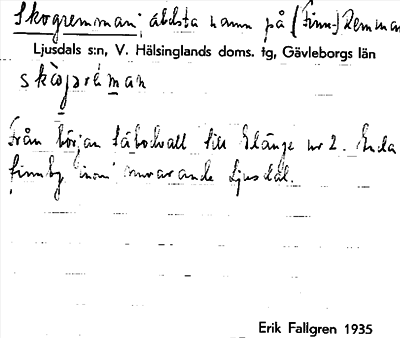 Skogremman; äldsta namn på (Finn-)Remman
Ljusdals s:n, V. Hälsinglands doms. tg, Gävleborgs län
skògrèman
Från början säbovall till Elänge nr 2. Enda
finnby inom nuvarande Ljusdal.
Erik Fallgren 1935